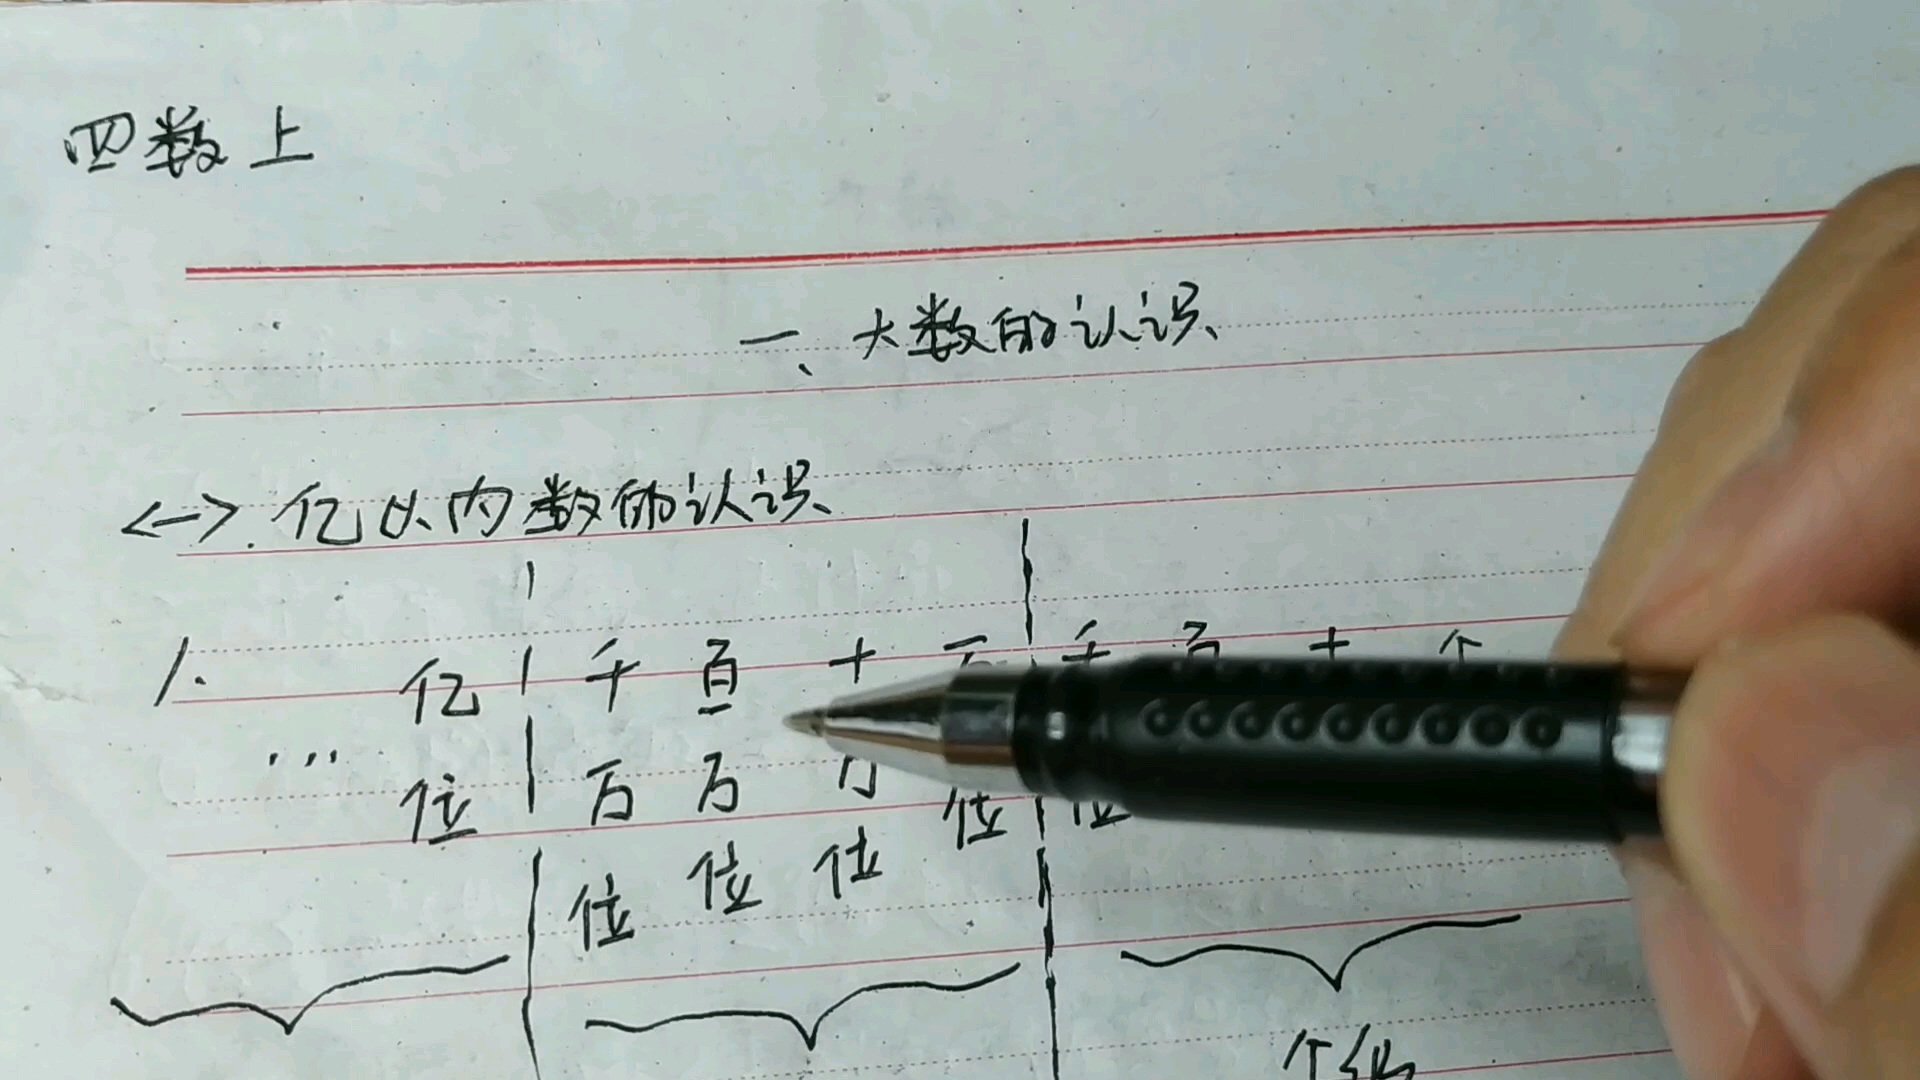 四数上
一、大数的认识
<一>.亿以内数的认识
1. 亿 千 百 十 万 千 百 十 个
... 位 万 万 万 位 位
位 位 位
个级